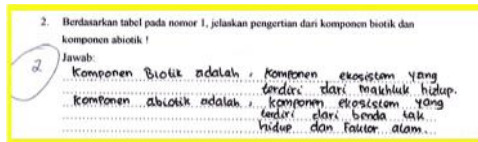 2. Berdasarkan tabel pada nomor 1, jelaskan pengertian dari komponen biotik dan
komponen abiotik !
Jawab:
2
Komponen Biotik adalah , Komponen ekosistem yang
terdiri dari makhluk hidup.
Komponen abiotik adalah , komponen ekosistem yang
terdiri dari benda tak
hidup dan Faktor alam.